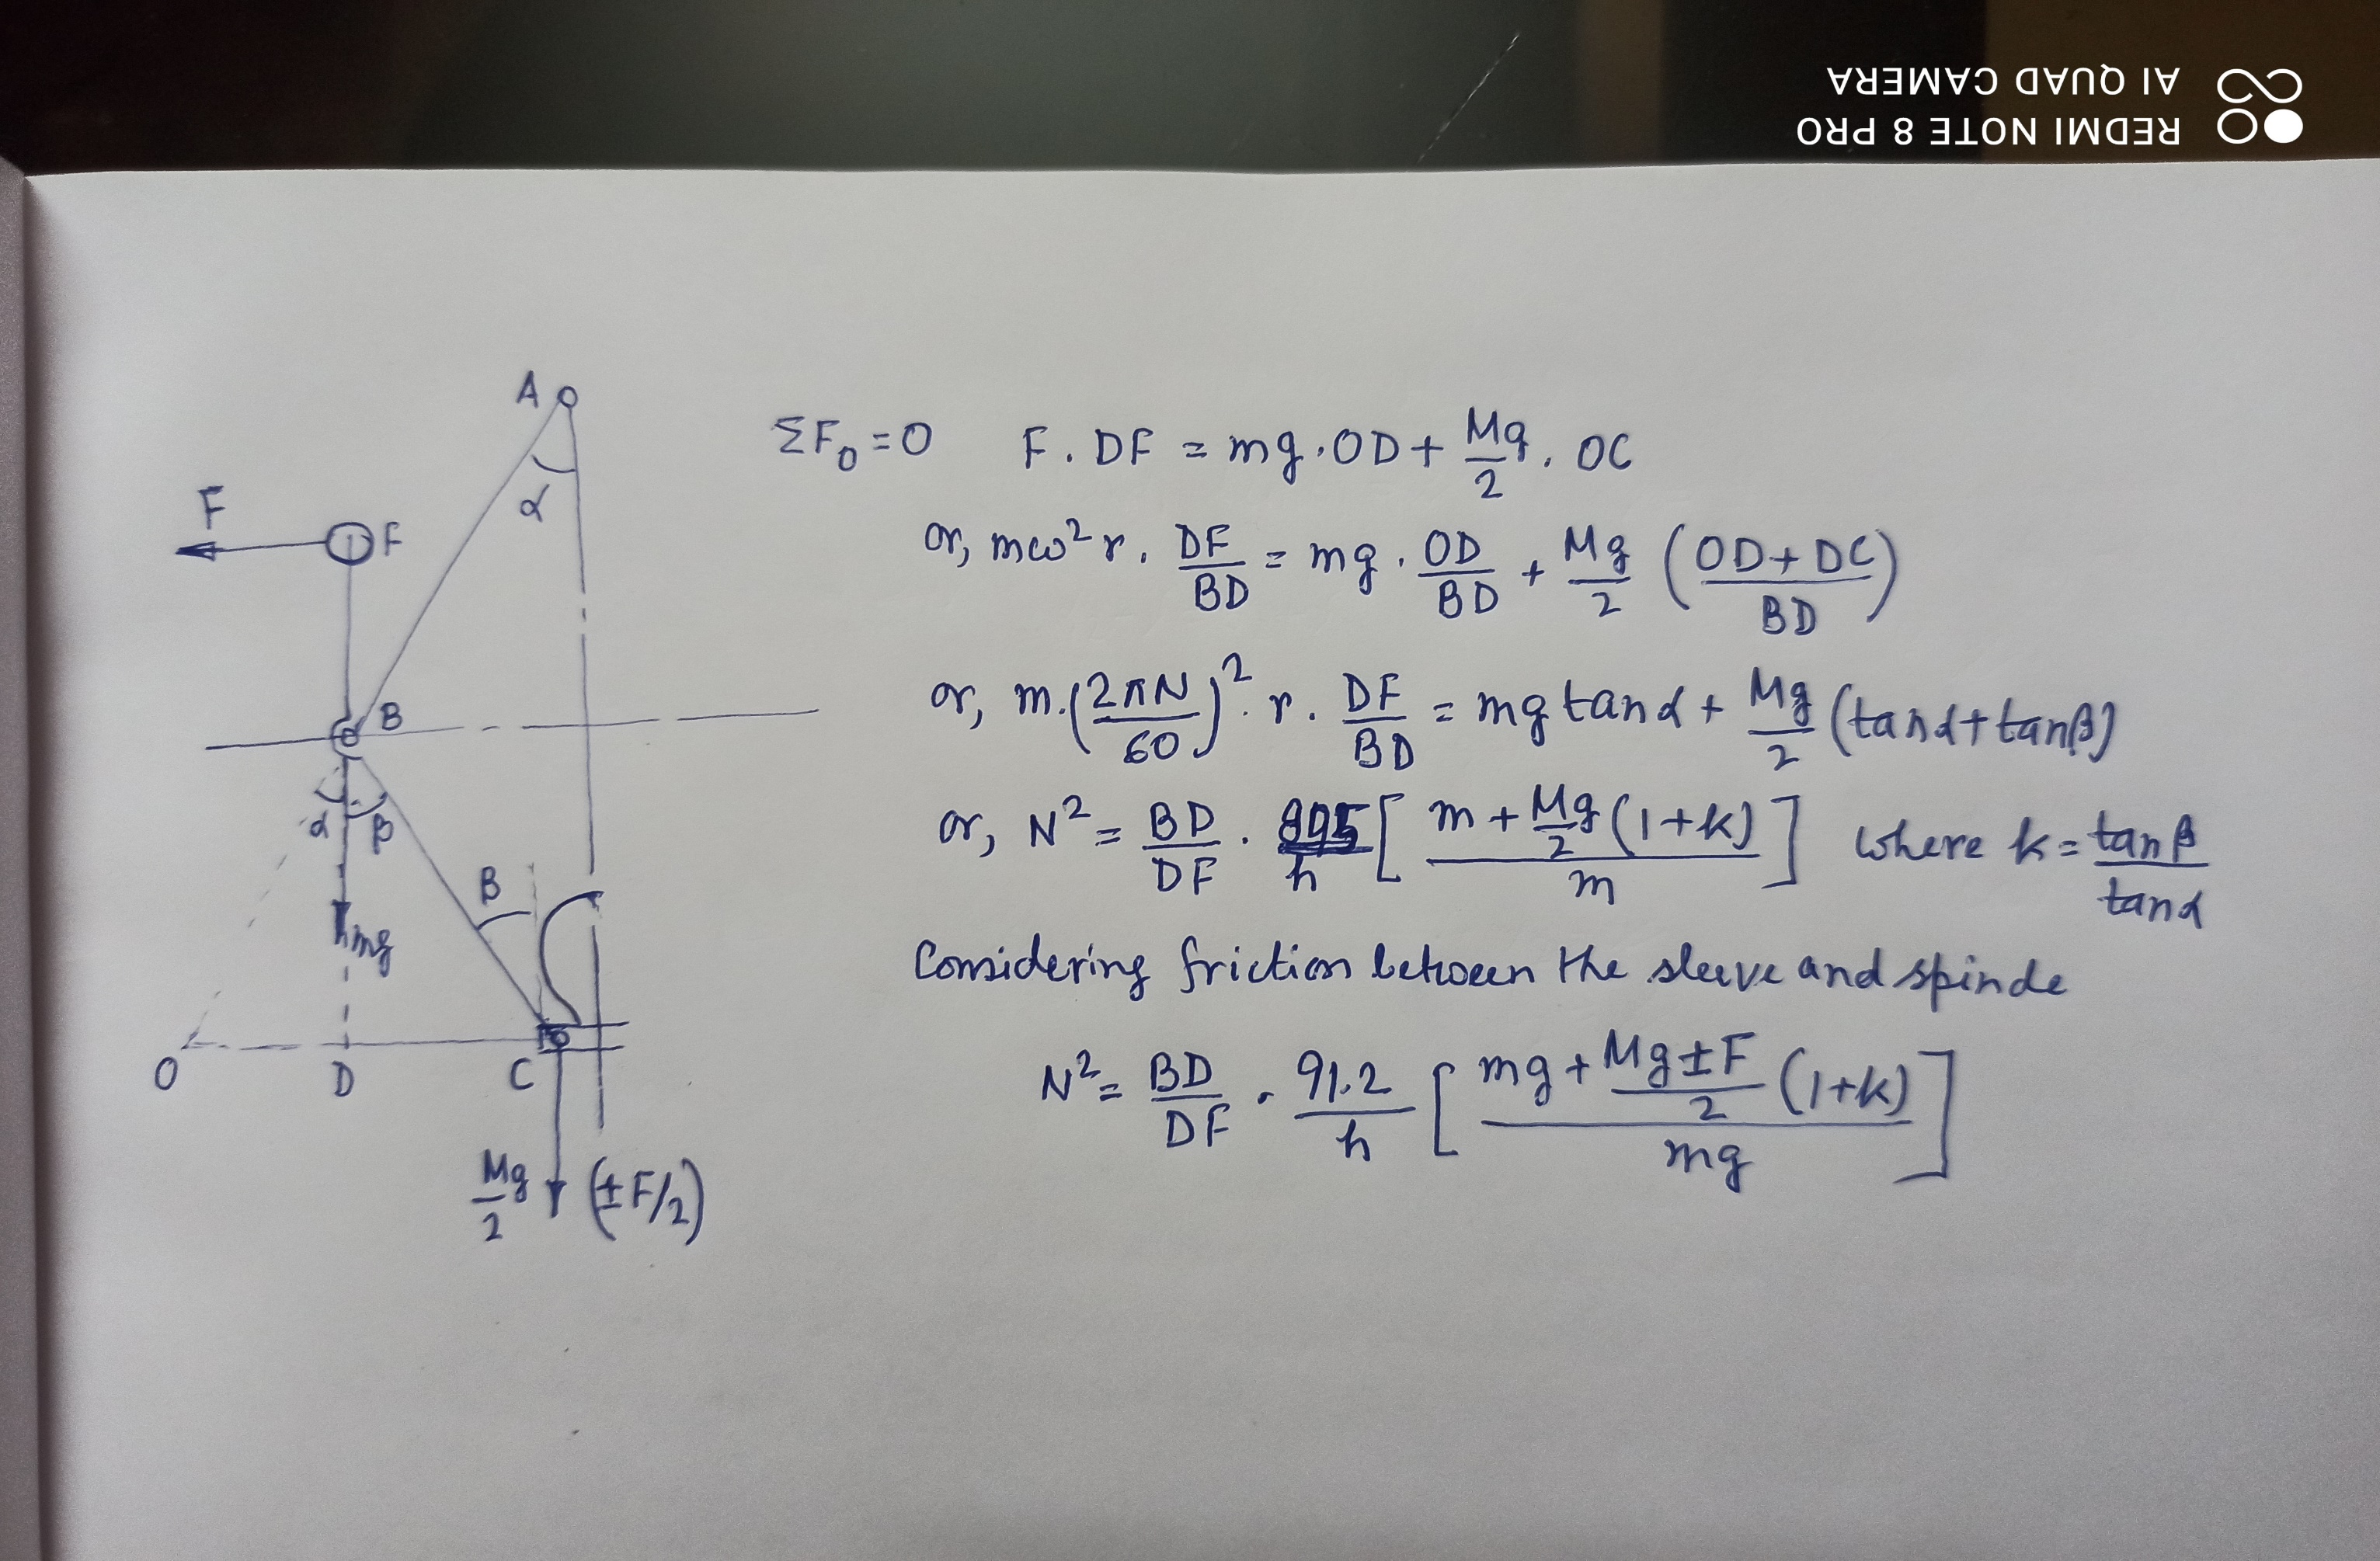 REDMI NOTE 8 PRO
AI QUAD CAMERA
A
α
F
F
B
α β
β
mg
O D C
Mg/2 (±F/2)
ΣF₀ = 0 F . DF = mg . OD + Mg/2 . OC
or, mω² r . DF/BD = mg . OD/BD + Mg/2 (OD + DC / BD)
or, m . (2πN/60)² . r . DF/BD = mg tanα + Mg/2 (tanα + tanβ)
or, N² = BD/DF . /h [m + Mg/2 (1+k) / m] where k = tanβ/tanα
Considering friction between the sleeve and spinde
N² = BD/DF . 91.2/h [mg + Mg ± F/2 (1+k) / mg]